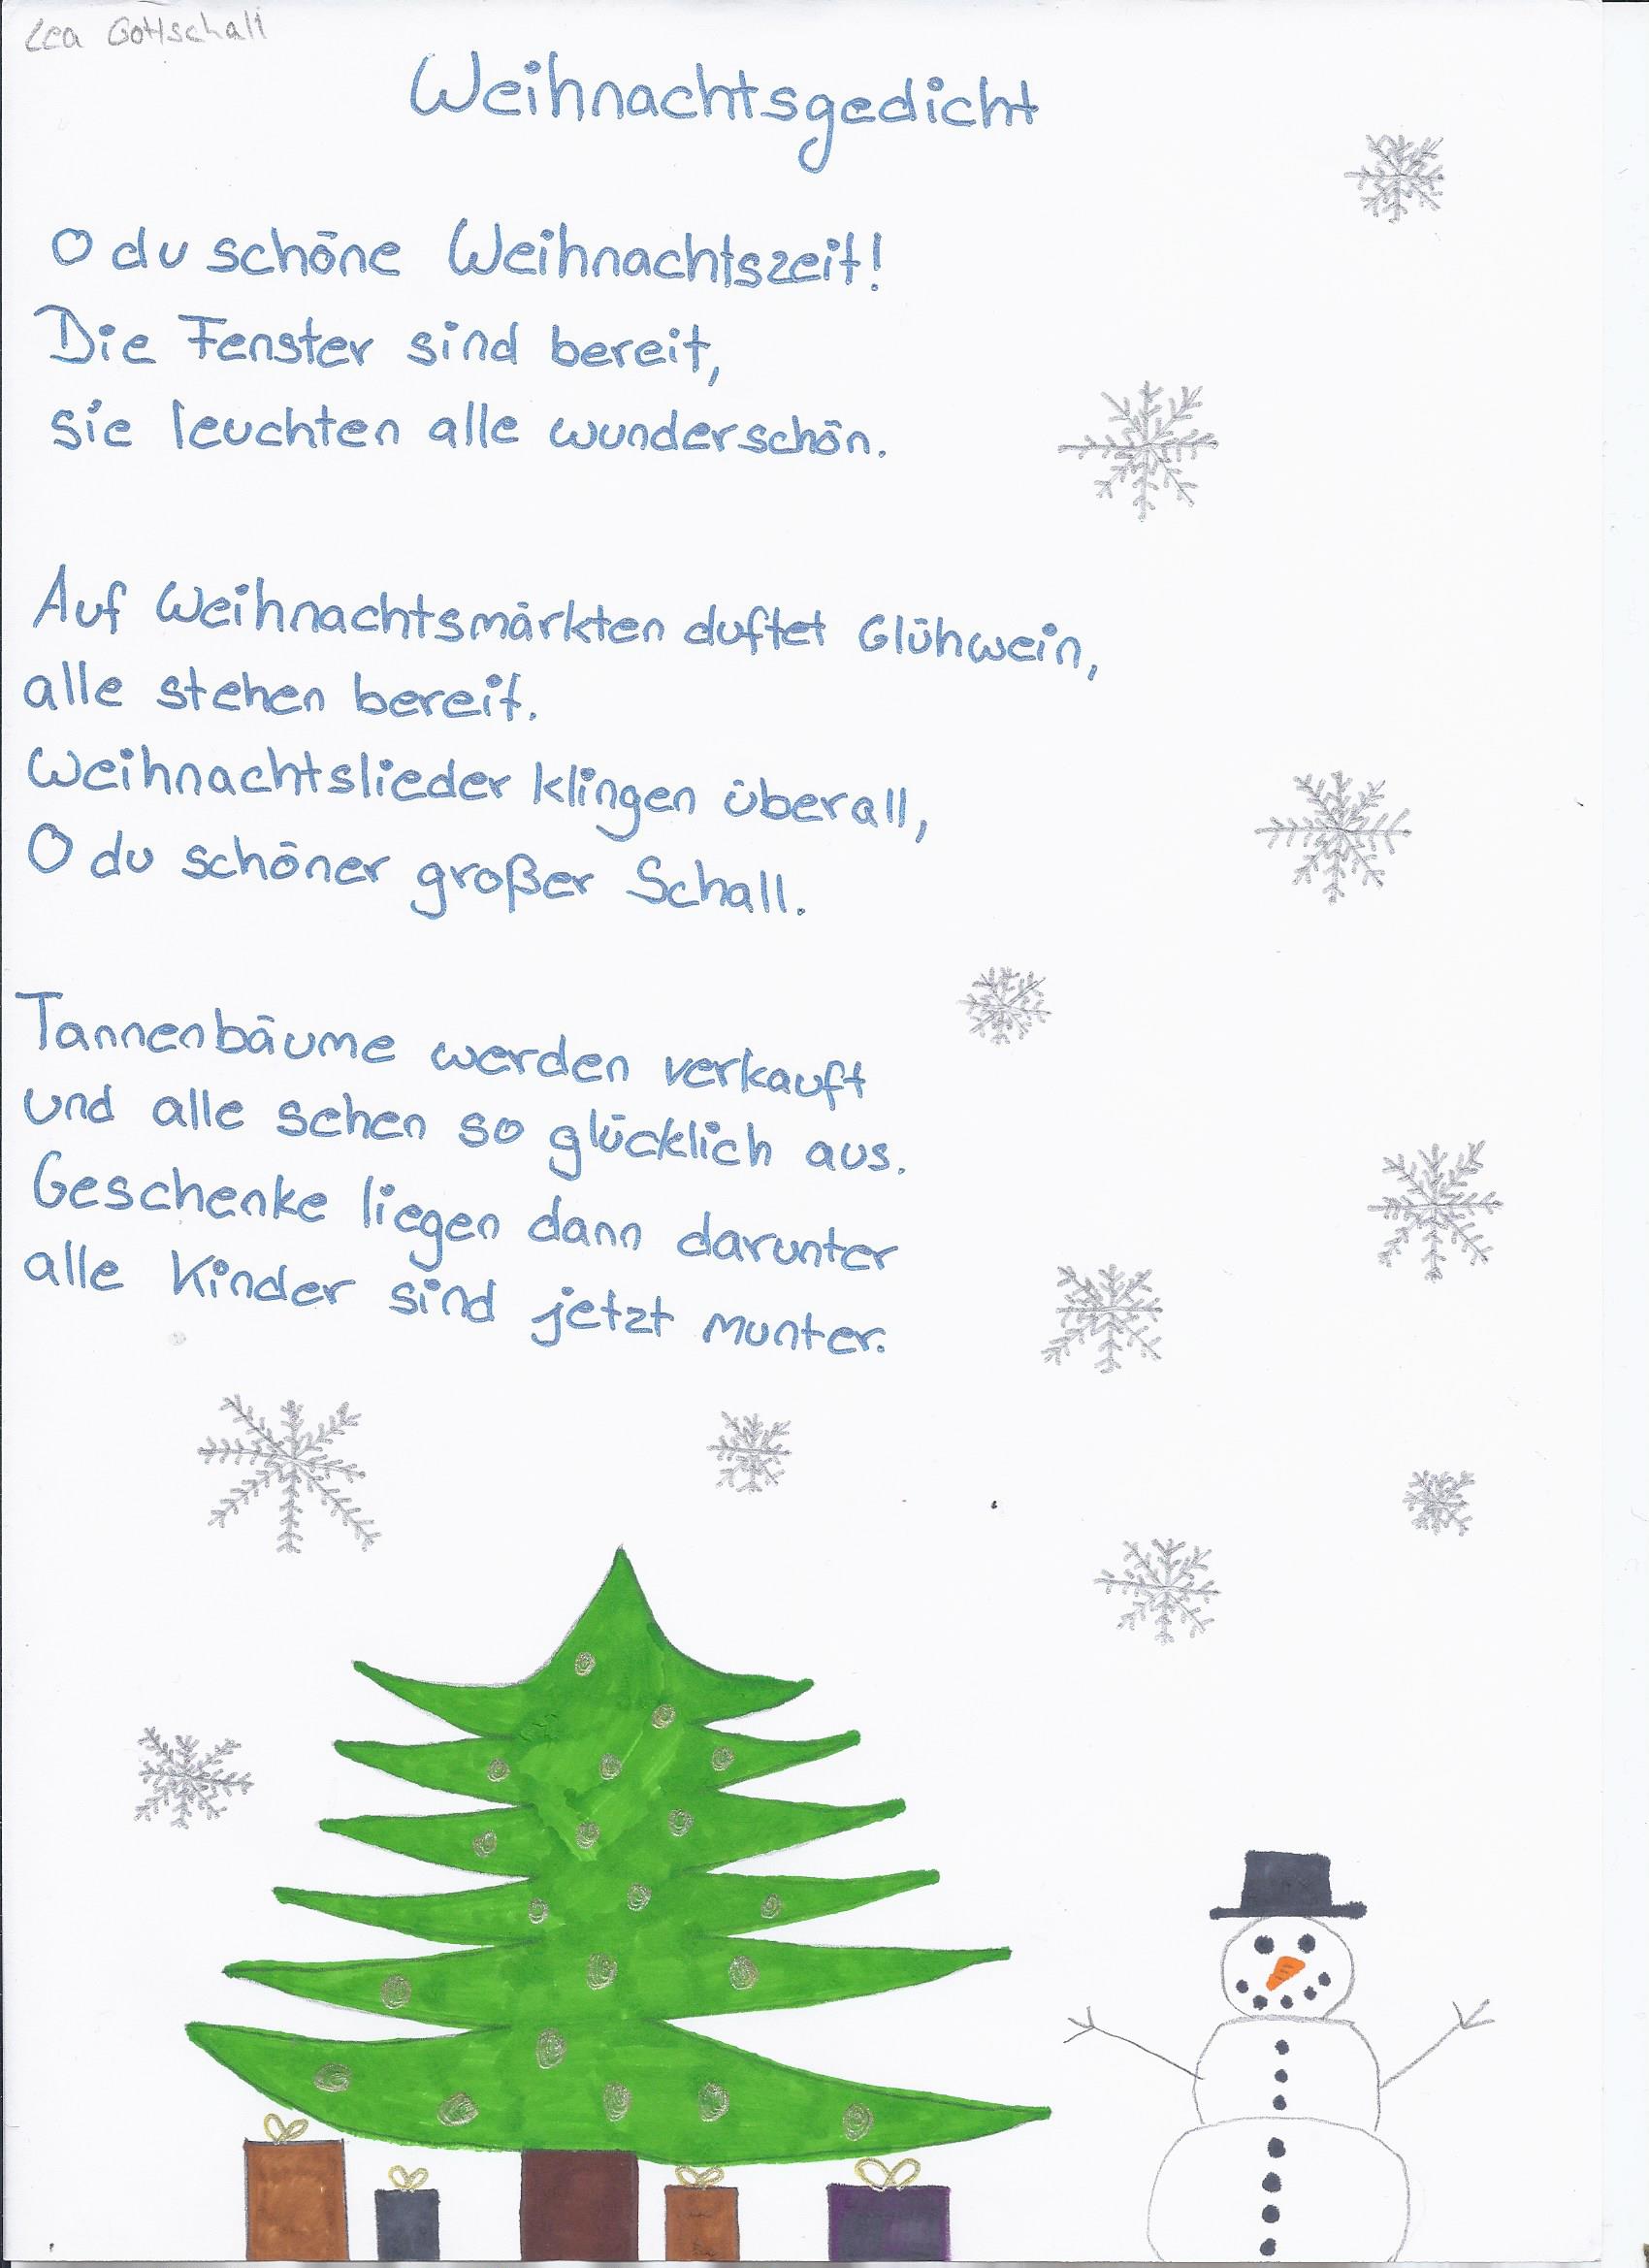 Lea Gottschall
Weihnachtsgedicht
O du schöne Weihnachtszeit!
Die Fenster sind bereit,
sie leuchten alle wunderschön.
Auf Weihnachtsmärkten duftet Glühwein,
alle stehen bereit.
Weihnachtslieder klingen überall,
O du schöner großer Schall.
Tannenbäume werden verkauft
und alle sehen so glücklich aus.
Geschenke liegen dann darunter
alle Kinder sind jetzt munter.